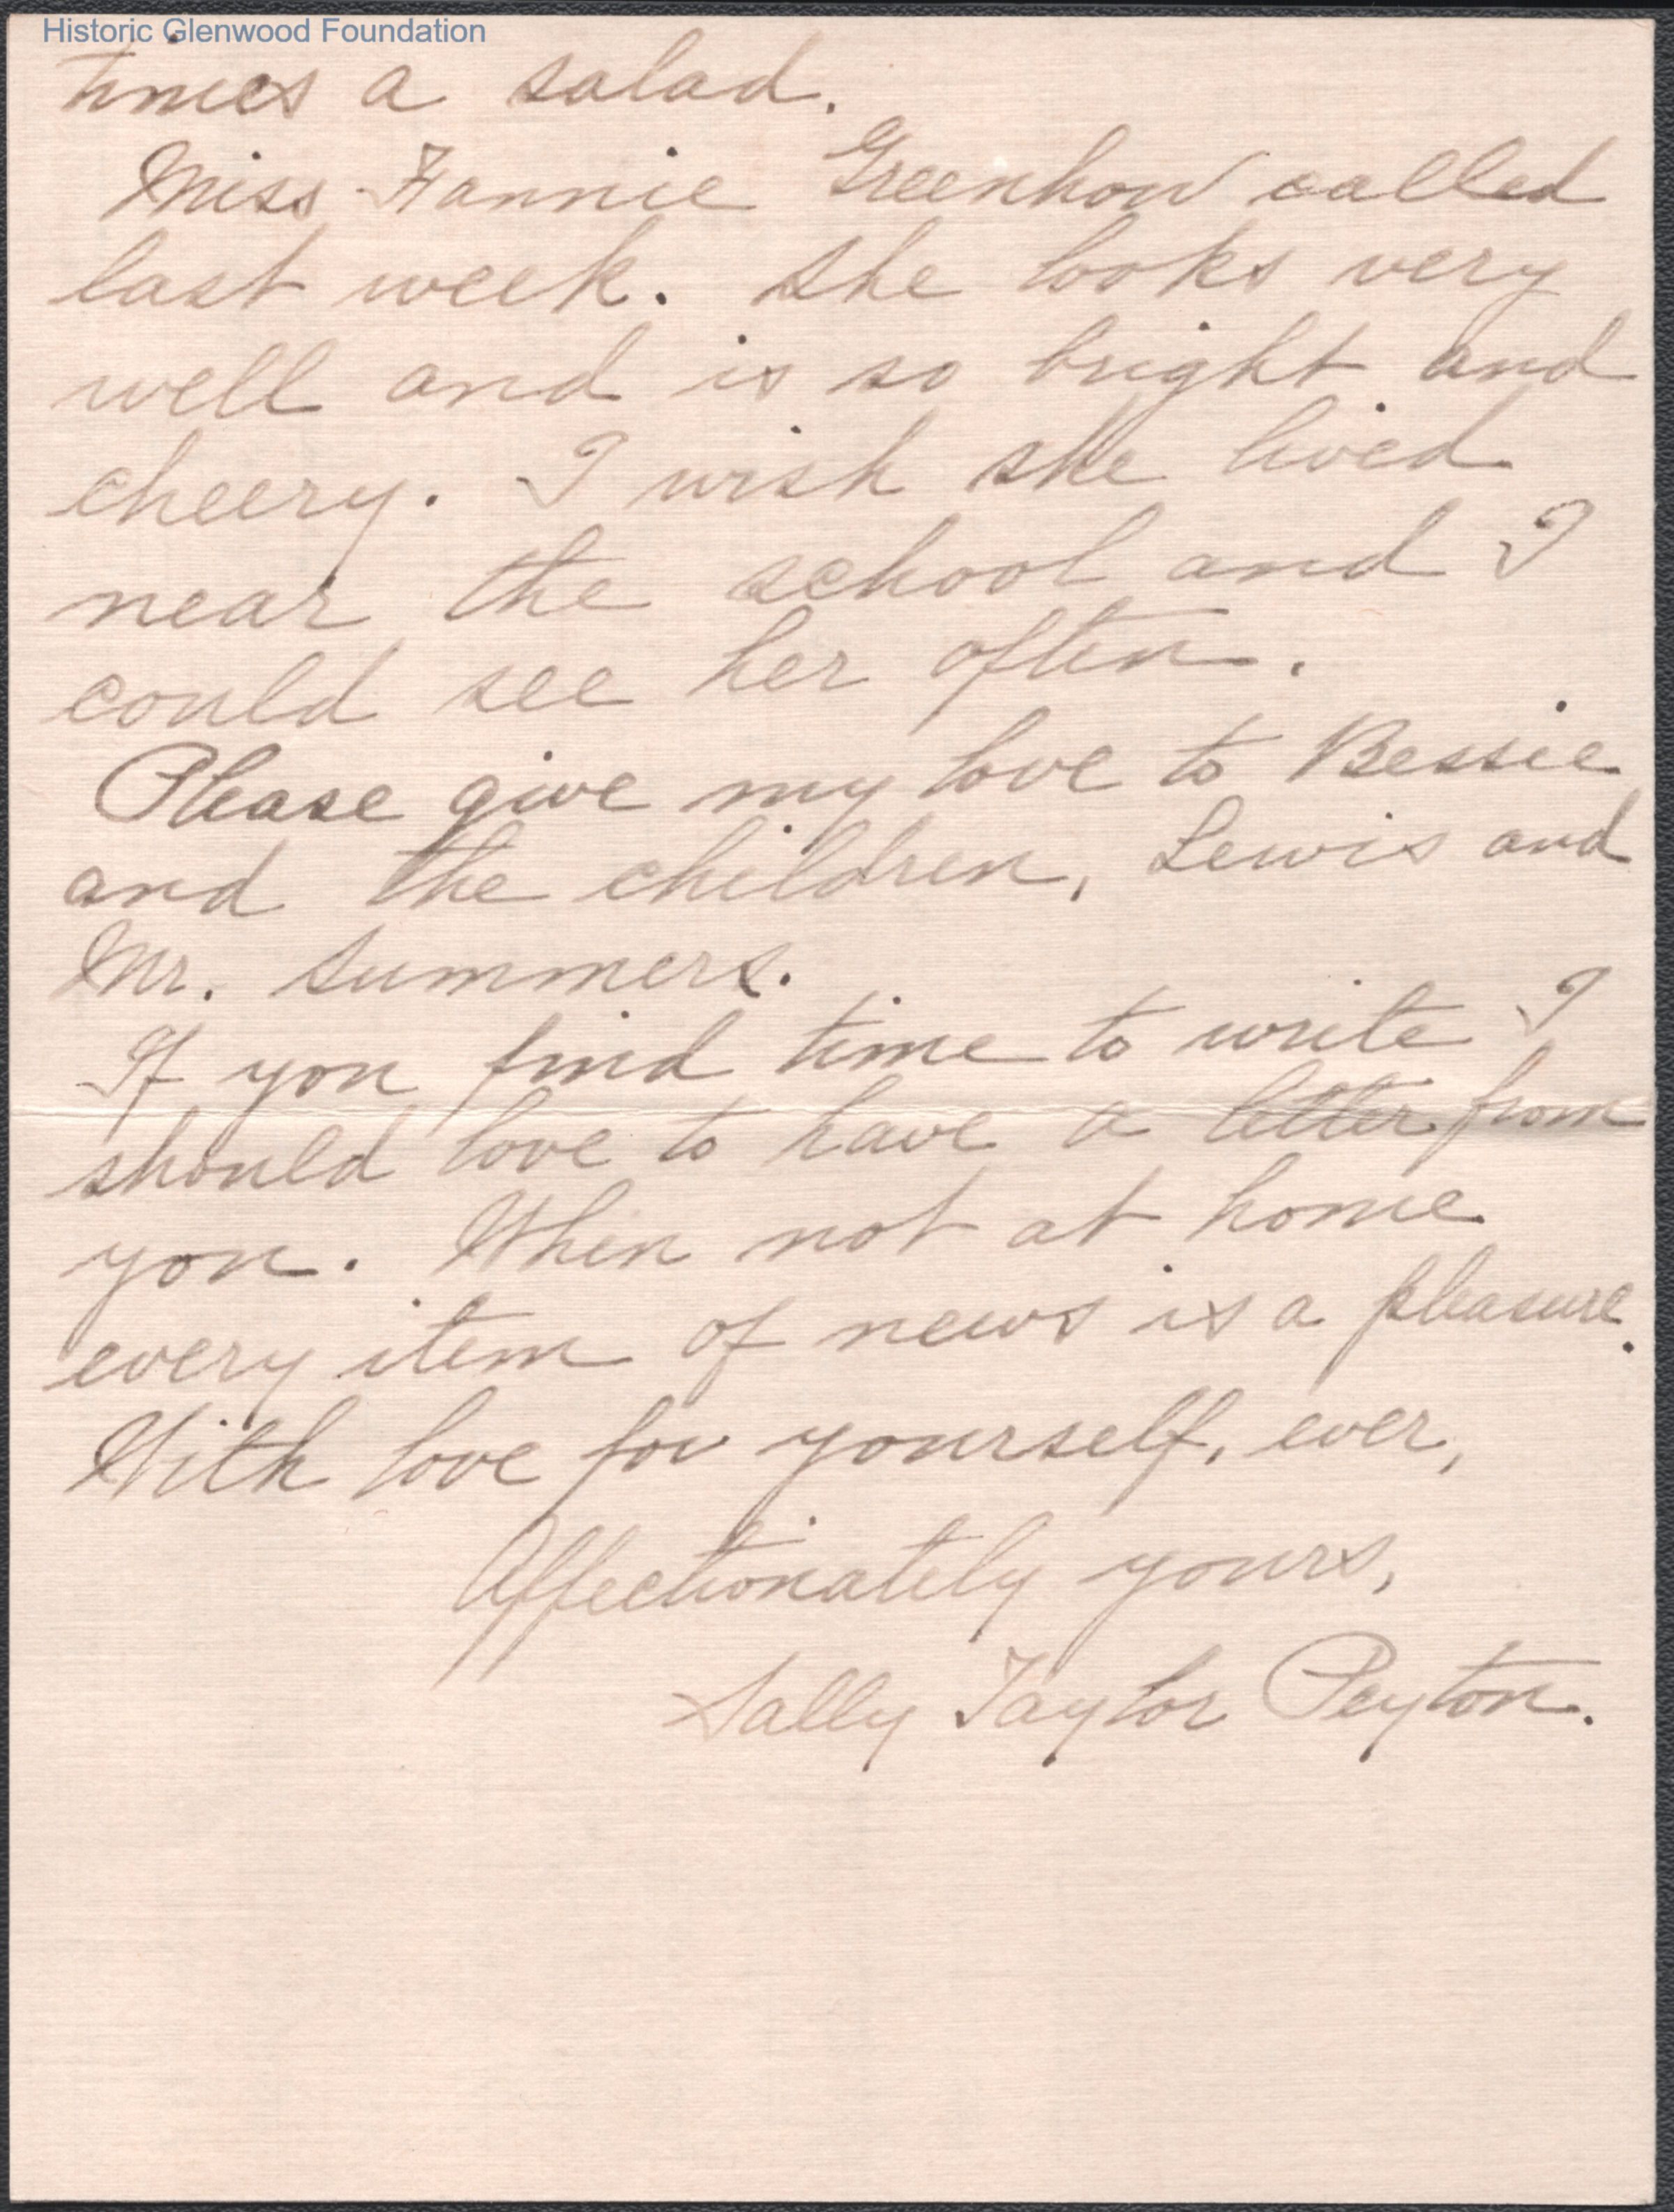 Historic Glenwood Foundation
times a salad.
Miss Fannie Greenhow called
last week. She looks very
well and is so bright and
cheery. I wish she lived
near the school and I
could see her often.
Please give my love to Bessie
and the children, Lewis and
Mr. Summers.
If you find time to write I
should love to have a letter from
you. When not at home
every item of news is a pleasure.
With love for yourself, ever,
Affectionately yours,
Sally Taylor Peyton.